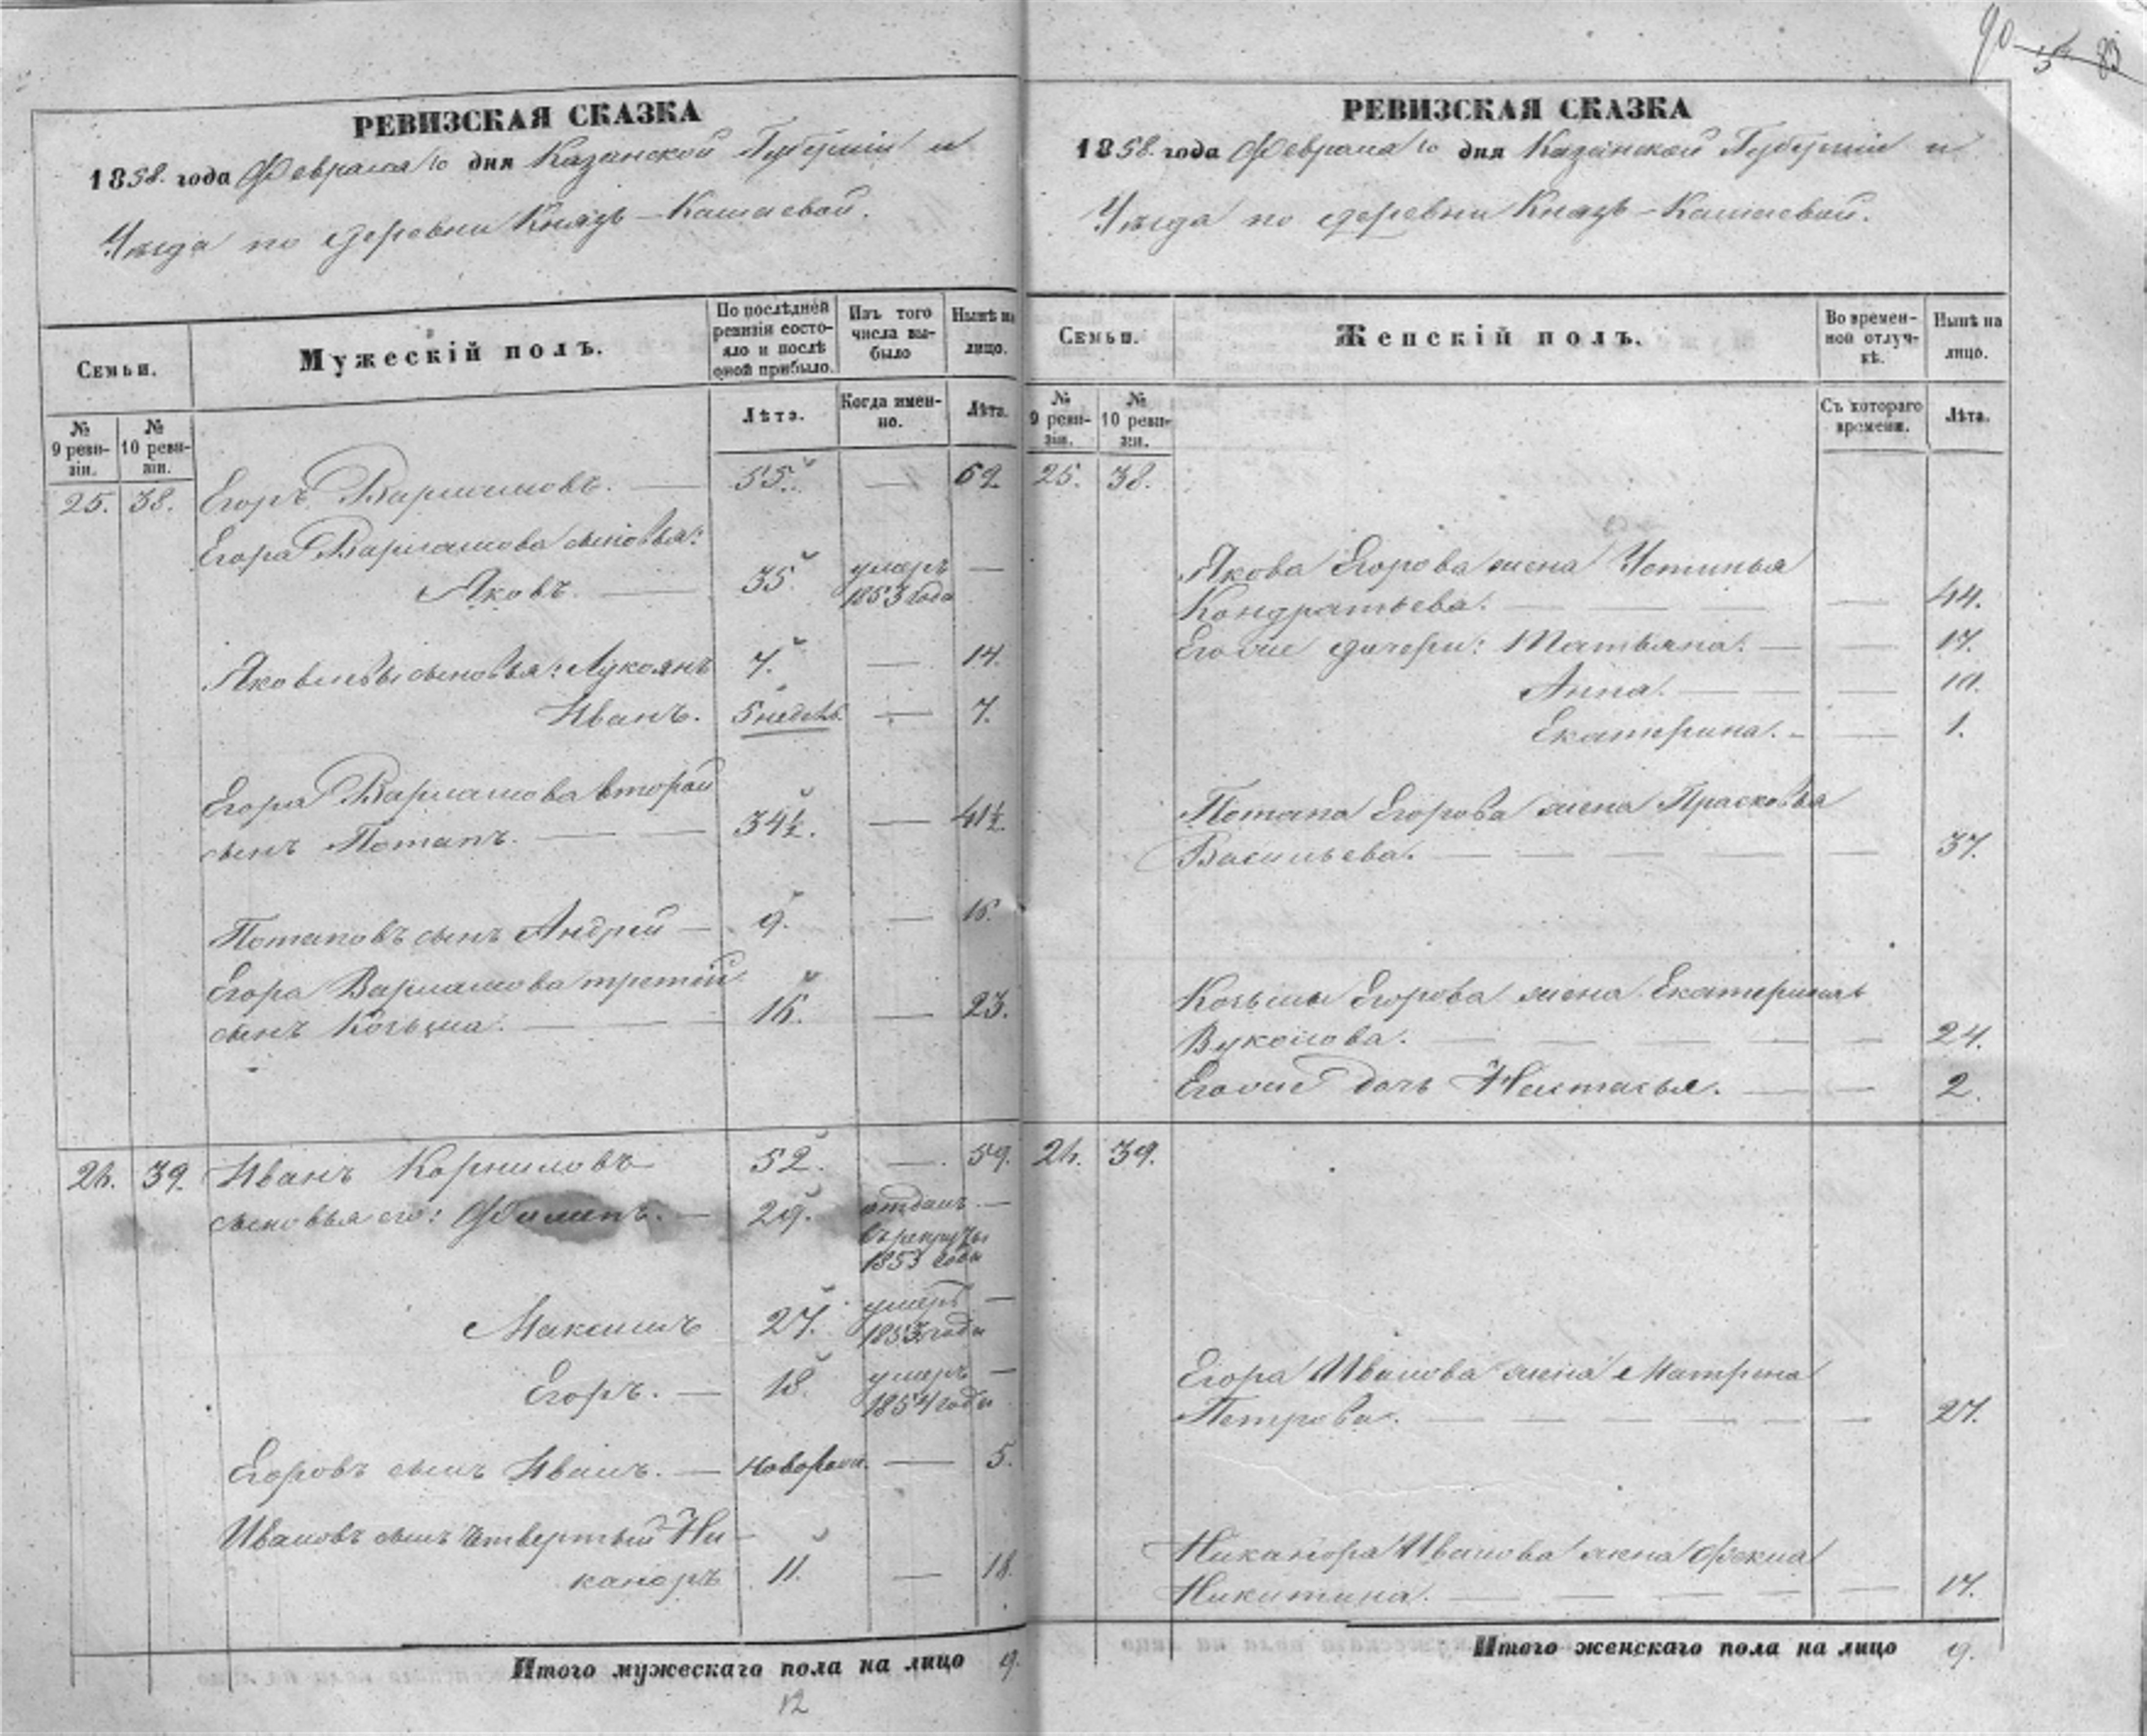 90 83
РЕВИЗСКАЯ СКАЗКА
1858. года Февраля 10 дня Казанской Губерніи и
Уѣзда по деревни Князь-Камаевой.
Семьи.
Мужескій полъ.
По послѣдней ревизіи состояло и послѣ оной прибыло.
Изъ того числа выбыло
Нынѣ на лицо.
№ 9 ревизіи.
№ 10 ревизіи.
Лѣта.
Когда именно.
Лѣта.
25. 38. Егоръ Варламовъ. — 55. — 62.
Егора Варламова сыновья:
Яковъ. — 35. умеръ 1853 года —
Яковлевы сыновья: Лукоянъ 7. — 14.
Иванъ. 5 недѣль. — 7.
Егора Варламова второй
сынъ Потапъ. — — 34½. — 41½.
Потаповъ сынъ Андрей — 9. — 16.
Егора Варламова третій
сынъ Козьма. — — 16. — 23.
26. 39. Иванъ Корниловъ 52. — 59.
сыновья его: Филипъ. — 29. отданъ въ рекруты 1853 года —
Максимъ 27. умеръ 1853 года —
Егоръ. — 18. умеръ 1854 года —
Егоровъ сынъ Иванъ. — новорож. — 5.
Ивановъ сынъ четвертый Ни-
каноръ 11. — 18.
Итого мужескаго пола на лицо 9.
12
РЕВИЗСКАЯ СКАЗКА
1858. года Февраля 10 дня Казанской Губерніи и
Уѣзда по деревни Князь-Камаевой.
Семьи.
Женскій полъ.
Во временной отлучкѣ.
Нынѣ на лицо.
№ 9 ревизіи.
№ 10 ревизіи.
Съ котораго времени.
Лѣта.
25. 38.
Якова Егорова жена Устинья
Кондратьева. — — — 44.
Еговые дочери: Татьяна. — — 17.
Анна. — — — 10.
Екатерина. — — 1.
Потапа Егорова жена Прасковья
Васильева. — — — — — 37.
Козьмы Егорова жена Екатерина
Вуколова. — — — — 24.
Еговые дочь Настасья. — — 2.
26. 39.
Егора Иванова жена Матрена
Петрова. — — — — — — 27.
Никанора Иванова жена Фекла
Никитина. — — — — — — 17.
Итого женскаго пола на лицо 9.